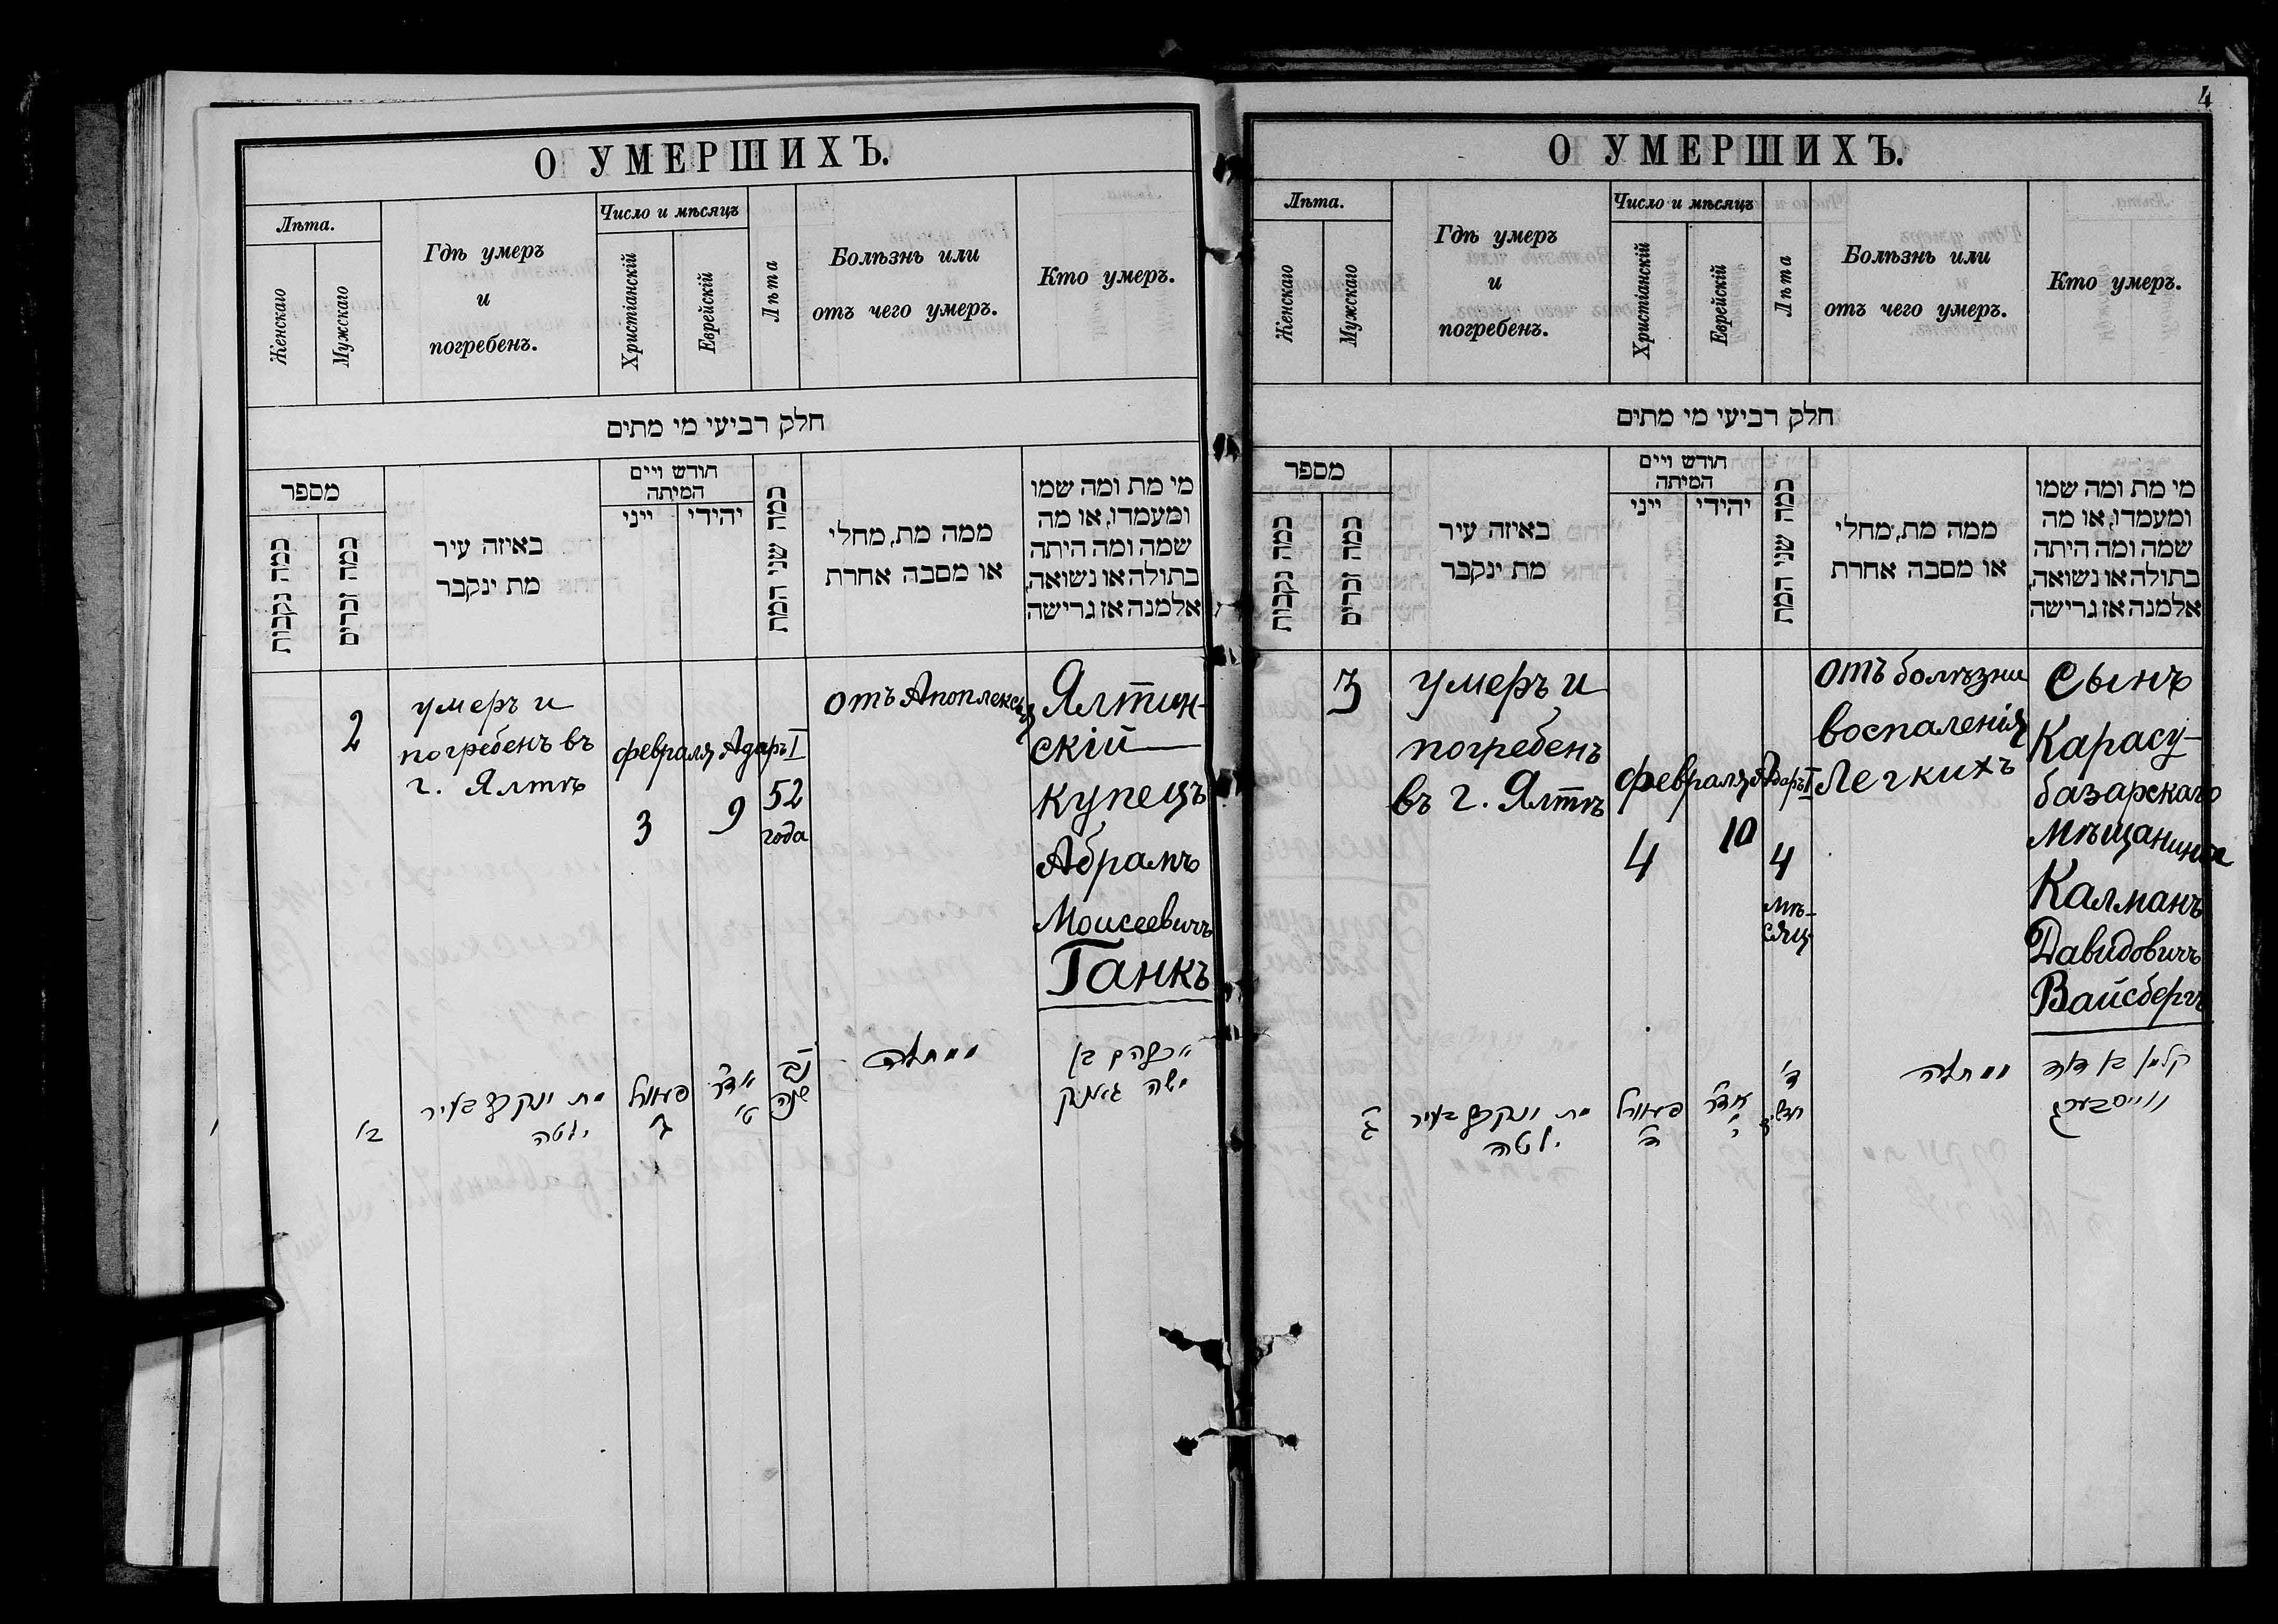 О УМЕРШИХЪ.
Лѣта.
Женскаго
Мужскаго
Гдѣ умеръ
и
погребенъ.
Число и мѣсяцъ
Христіанскій
Еврейскій
Лѣта
Болѣзнь или
отъ чего умеръ.
Кто умеръ.
חלק רביעי מי מתים
מספר
כמה נקבות
כמה זכרים
באיזה עיר
מת ינקבר
חודש ויים
המיתה
ייני
יהידי
כמה שני המת
ממה מת, מחלי
או מסבה אחרת
מי מת ומה שמו
ומעמדו, או מה
שמה ומה היתה
בתולה או נשואה,
אלמנה אז גרישה
2
умеръ и
погребенъ въ
г. Ялтѣ
февраля Адаръ I
3
9
52
года
отъ Апоплексія
Ялтин-
скій
купецъ
Абрамъ
Моисеевичъ
Ганкъ
ב'
מת ונקבר בעיר
ילטה
ג'
אדר
ט'
נב
שנה
ממחלה
אברהם בן
משה גאנק
4
О УМЕРШИХЪ.
Лѣта.
Женскаго
Мужскаго
Гдѣ умеръ
и
погребенъ.
Число и мѣсяцъ
Христіанскій
Еврейскій
Лѣта
Болѣзнь или
отъ чего умеръ.
Кто умеръ.
חלק רביעי מי מתים
מספר
כמה נקבות
כמה זכרים
באיזה עיר
מת ינקבר
חודש ויים
המיתה
ייני
יהידי
כמה שני המת
ממה מת, מחלי
או מסבה אחרת
מי מת ומה שמו
ומעמדו, או מה
שמה ומה היתה
בתולה או נשואה,
אלמנה אז גרישה
3
умеръ и
погребенъ
въ г. Ялтѣ
февраля Адаръ I
4
10
4
мѣ-
сяц
отъ болѣзни
воспаленія
Легкихъ
Сынъ
Карасу-
базарскаго
Мѣщанина
Калманъ
Давидовичъ
Вайсбергъ
ג'
מת ונקבר בעיר
ילטה
ד'
אדר
י'
ד'
ממחלה
קלמן בן דוד
ווייסבערג